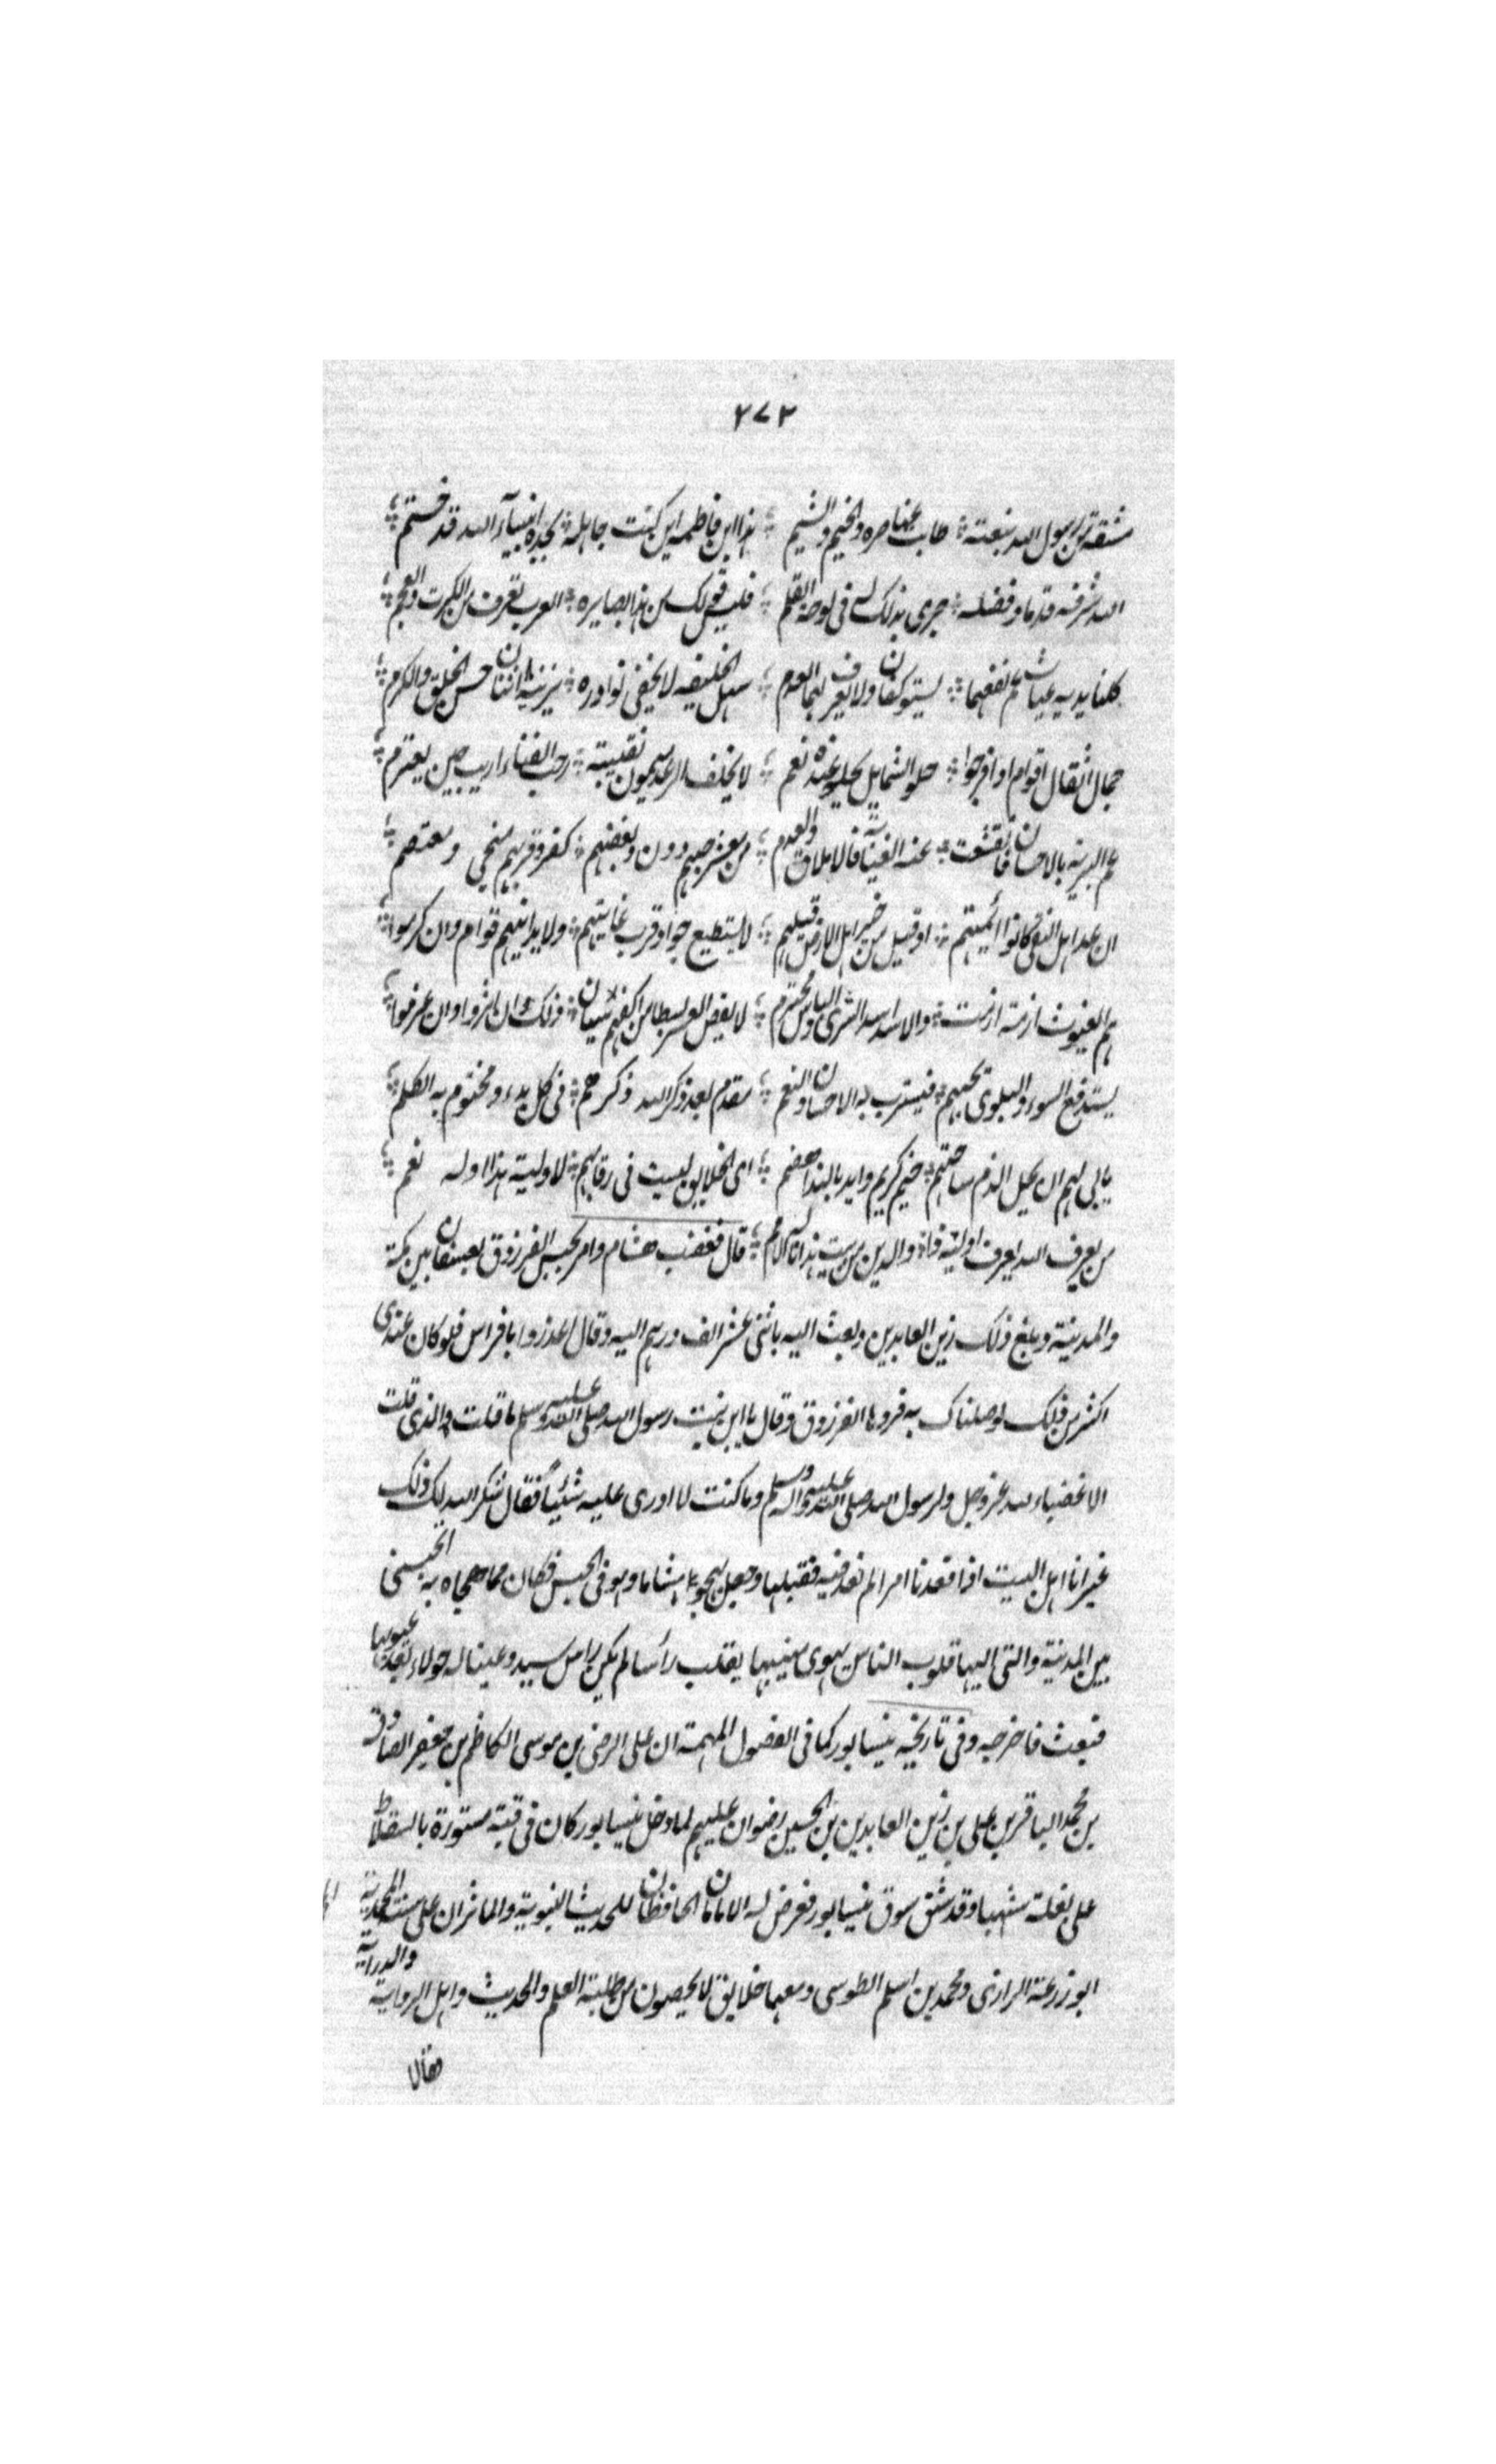 ٢٧٢
مشتقة من رسول الله نبعته طابت عناصره والخيم والشيم هذا ابن فاطمه ان كنت جاهله بجده انبيآء الله قد ختم
الله شرفه قدما وفضله جرى بذلك له فى لوحه القلم فليس قولك من هذا بضايره العرب تعرف من انكرت والعجم
كلتا يديه غياث عم نفعهما يستوكفان ولا يعرفهما العدم سهل الخليقه لا تخفى بوادره يزينه اثنان حسن الخلق والكرم
حمال اثقال اقوام اذا فدحوا حلو الشمايل يحلو عنده نعم لا يخلف الوعد ميمون نقيبته رحب الفناء اريب حين يعتزم
عم البرية بالاحسان فانقشعت عنه الغيابة والاملاق والعدم من معشر حبهم دين وبغضهم كفر وقربهم منجى ومعتصم
ان عد اهل التقى كانوا ائمتهم او قيل من خير اهل الارض قيل هم لا يستطيع جواد قرب غايتهم ولا يدانيهم قوم وان كرموا
هم الغيوث اذا ما ازمة ازمت والاسد اسد الشرى والباس محتدم لا يقبض العسر بسطا من اكفهم سيان ذلك ان اثروا وان عدموا
يستدفع السوء والبلوى بحبهم ويسترب به الاحسان والنعم مقدم بعد ذكر الله ذكرهم فى كل بدء ومختوم به الكلم
يابى لهم ان يحل الذم ساحتهم خيم كريم وايد بالندا هضم اى الخلايق ليست فى رقابهم لاولية هذا اوله نعم
من يعرف الله يعرف اولية ذا والدين من بيت هذا ناله الامم قال فغضب هشام وامر بحبس الفرزوق بعسفان بين مكة
والمدينة وبلغ ذلك زين العابدين وبعث اليه باثنى عشر الف درهم اليه وقال اعذر يا ابا فراس فلو كان عندى
اكثر من ذلك لوصلناك به فردها الفرزوق وقال يا ابن بنت رسول الله صلى الله عليه وسلم ما قلت الذى قلت
الا غضباء لله عز وجل ولرسول الله صلى الله عليه واله وسلم وما كنت لا ارزى عليه شيئاً فقال شكر الله لك ذلك
غير انا اهل البيت اذا انفذنا امرا لم نعد فيه فقبلها وجعل يهجو هشاما وهو فى الحبس فكان مما هجاه به اتحبسنى
بين المدينة والتى اليها قلوب الناس يهوى منيبها يقلب رأسا لم يكن راس سيد وعينا له حولاء بعد عيوبها
فبعث فاخرجه وفى تاريخ نيسابور كما فى الفصول المهمة ان على الرضى بن موسى الكاظم بن جعفر الصادق
بن محمد الباقر بن على بن زين العابدين بن الحسين رضوان عليهم لما دخل نيسابور كان فى قبة مستورة بالسقلاط
على بغلة شهبا وقد شق سوق نيسابور فعرض له الامامان الحافظان للحديث النبوية والماثران على سنته المحمدية
ابو زرعة الرازى ومحمد بن اسلم الطوسى ومعهما خلايق لا يحصون من طلبة العلم والحديث واهل الرواية والدراية
فقالا